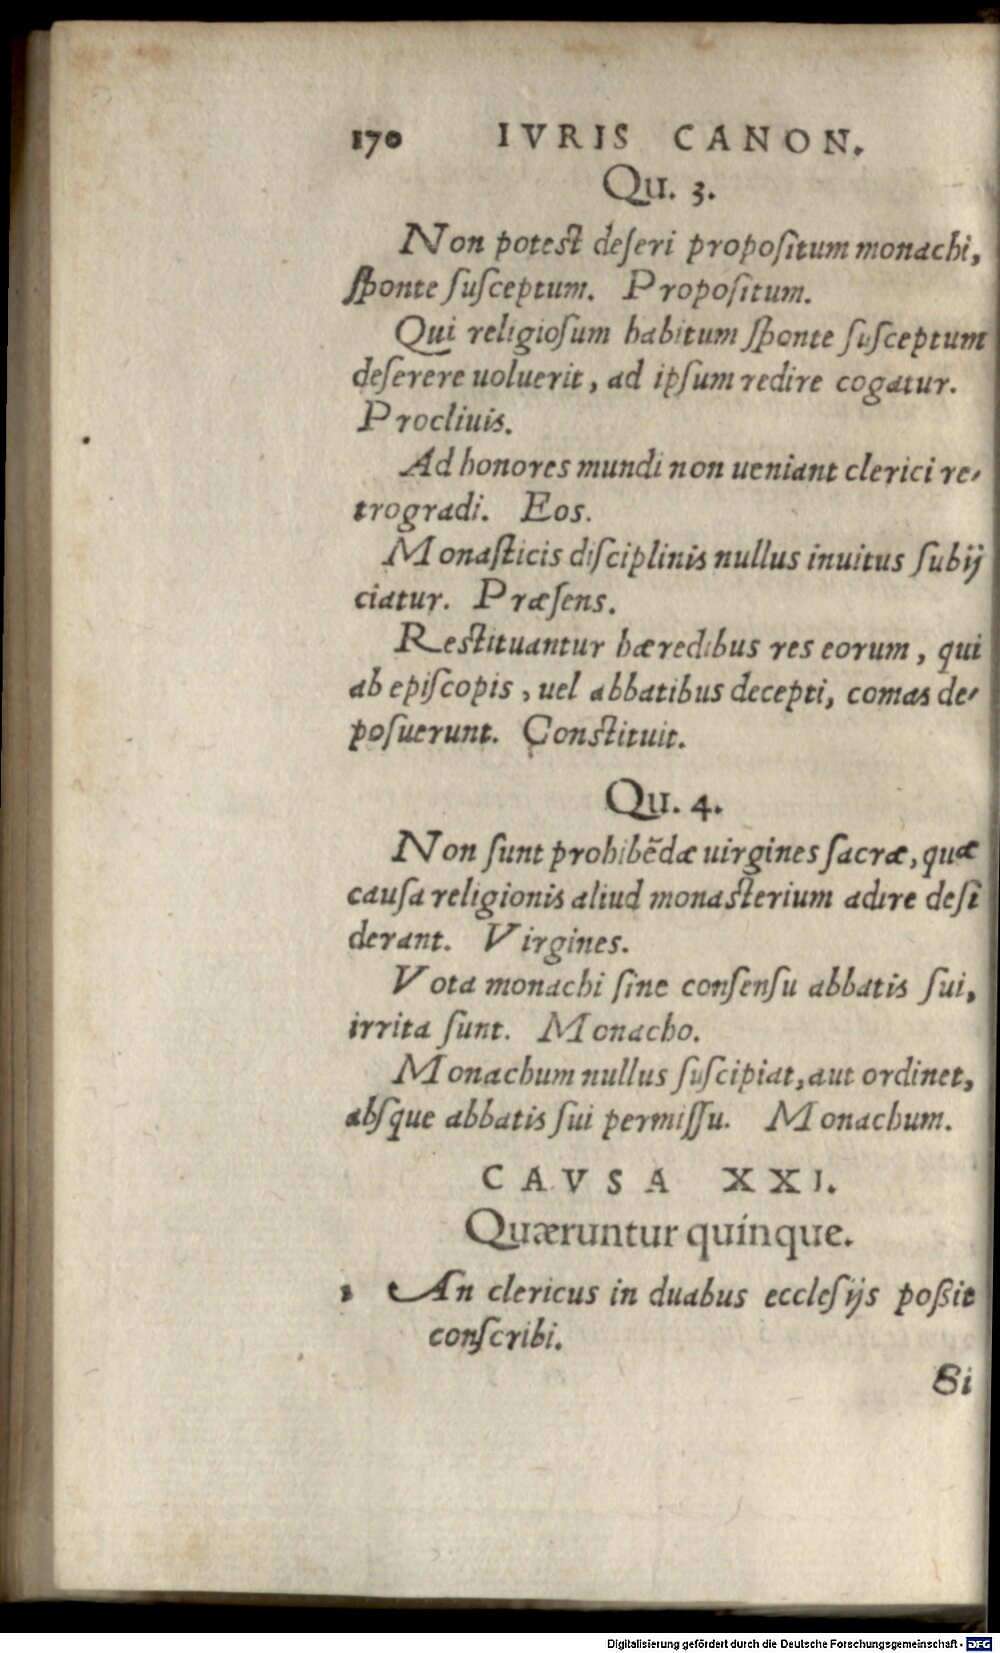 170 IVRIS CANON.
Qu. 3.
Non potest deseri propositum monachi,
sponte susceptum. Propositum.
Qui religiosum habitum sponte susceptum
deserere uoluerit, ad ipsum redire cogatur.
Procliuis.
Ad honores mundi non ueniant clerici re-
trogradi. Eos.
Monasticis disciplinis nullus inuitus subij
ciatur. Præsens.
Restituantur hæredibus res eorum, qui
ab episcopis, uel abbatibus decepti, comas de-
posuerunt. Constituit.
Qu. 4.
Non sunt prohibẽdæ uirgines sacræ, quæ
causa religionis aliud monasterium adire desi
derant. Virgines.
Vota monachi sine consensu abbatis sui,
irrita sunt. Monacho.
Monachum nullus suscipiat, aut ordinet,
absque abbatis sui permissu. Monachum.
CAVSA XXI.
Quæruntur quinque.
1 An clericus in duabus ecclesijs poßit
conscribi.
Si
Digitalisierung gefördert durch die Deutsche Forschungsgemeinschaft - DFG